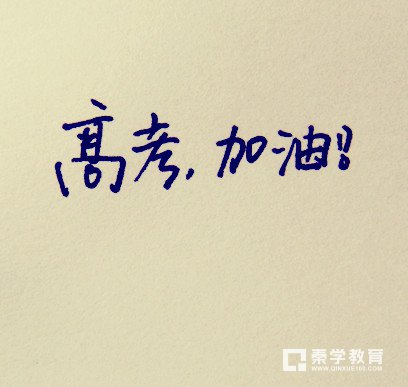 高考,加油!!
秦学教育
WWW.QINXUE100.COM